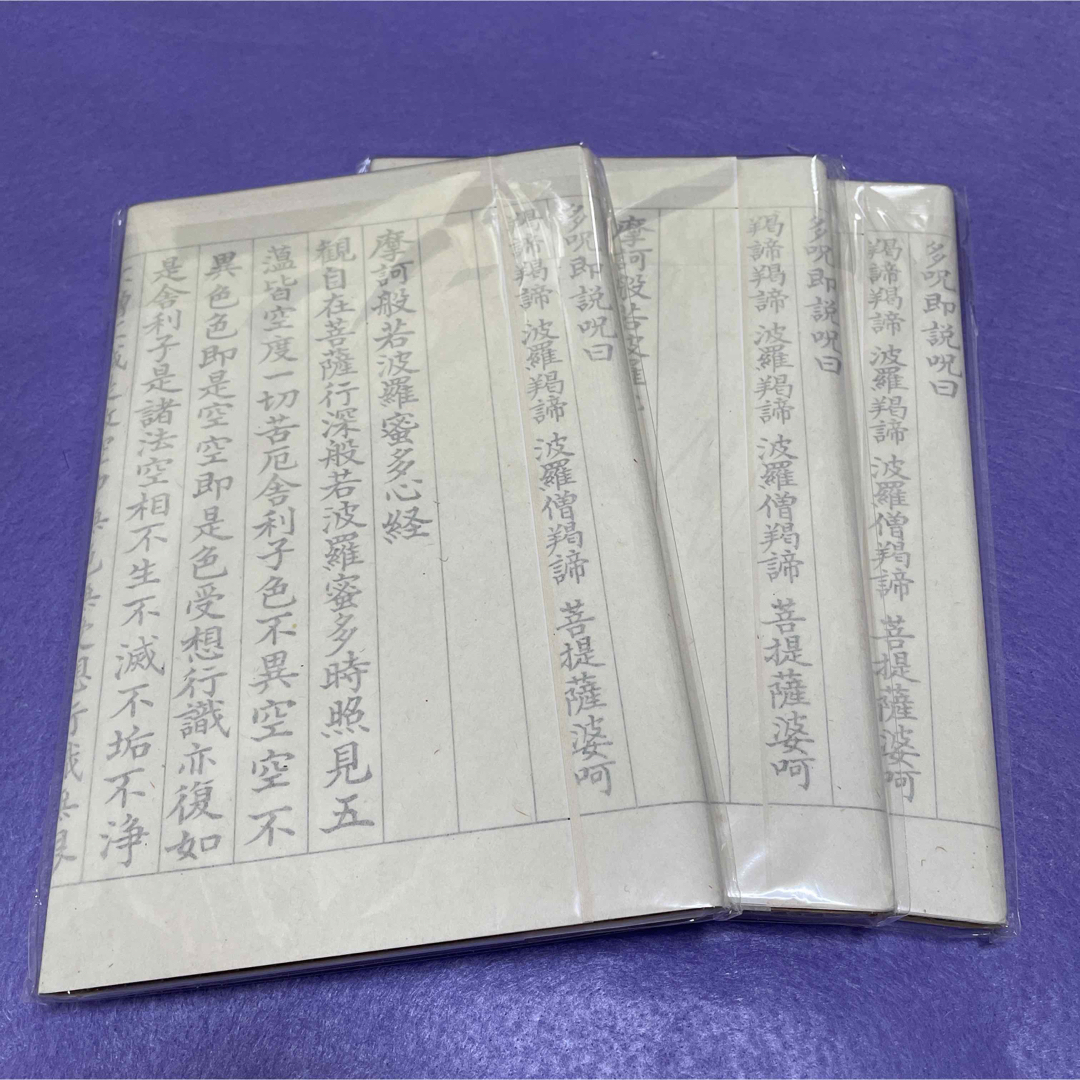 多呪即説呪曰
羯諦羯諦 波羅羯諦 波羅僧羯諦 菩提薩婆呵
摩訶般若波羅蜜多心経
観自在菩薩行深般若波羅蜜多時照見五
薀皆空度一切苦厄舎利子色不異空空不
異色色即是空空即是色受想行識亦復如
是舎利子是諸法空相不生不滅不垢不浄
多呪即説呪曰
羯諦羯諦 波羅羯諦 波羅僧羯諦 菩提薩婆呵
摩訶般若波羅
多呪即説呪曰
羯諦羯諦 波羅羯諦 波羅僧羯諦 菩提薩婆呵